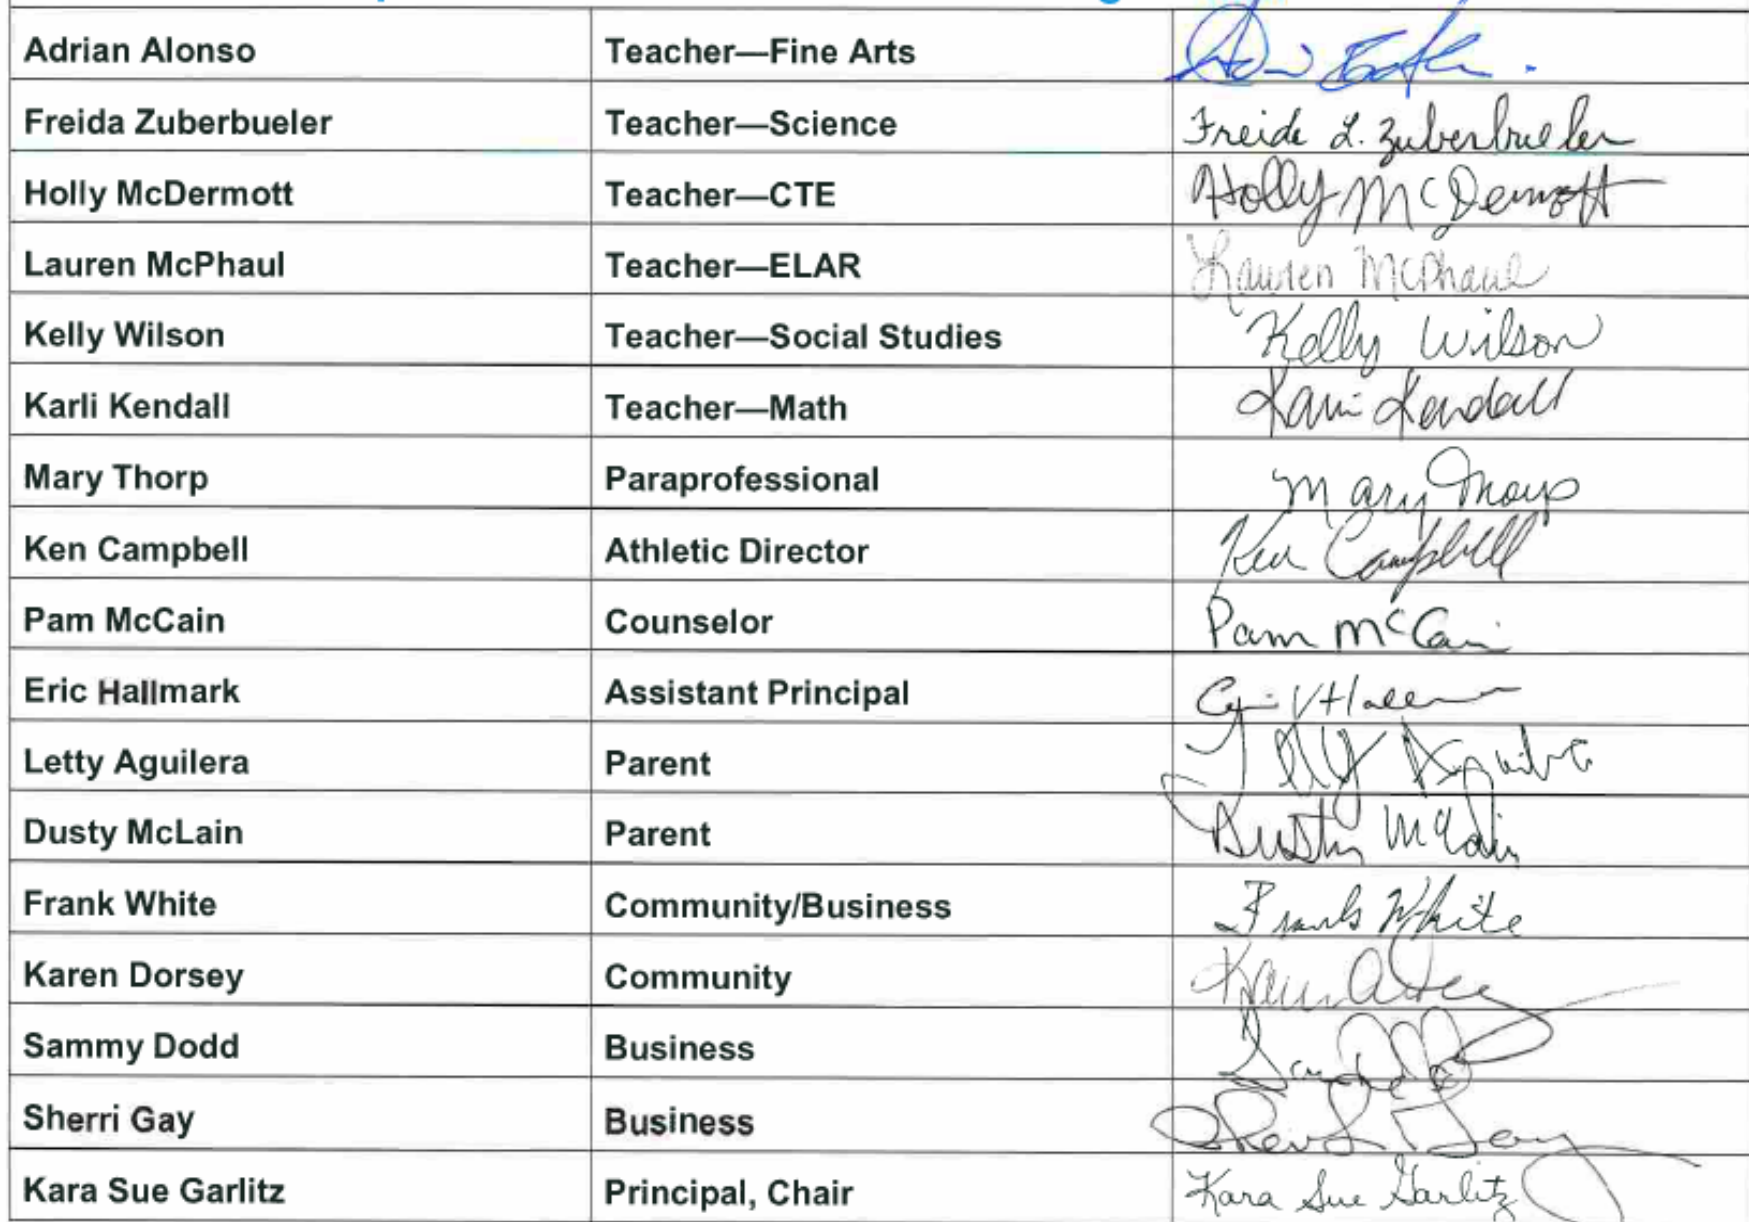 Adrian Alonso Teacher—Fine Arts
Freida Zuberbueler Teacher—Science Freida L. Zuberbueler
Holly McDermott Teacher—CTE Holly McDermott
Lauren McPhaul Teacher—ELAR Lauren McPhaul
Kelly Wilson Teacher—Social Studies Kelly Wilson
Karli Kendall Teacher—Math Karli Kendall
Mary Thorp Paraprofessional Mary
Ken Campbell Athletic Director Ken Campbell
Pam McCain Counselor Pam McCain
Eric Hallmark Assistant Principal
Letty Aguilera Parent Letty Aguilera
Dusty McLain Parent Dusty McLain
Frank White Community/Business Frank White
Karen Dorsey Community Karen
Sammy Dodd Business
Sherri Gay Business Sherri Gay
Kara Sue Garlitz Principal, Chair Kara Sue Garlitz